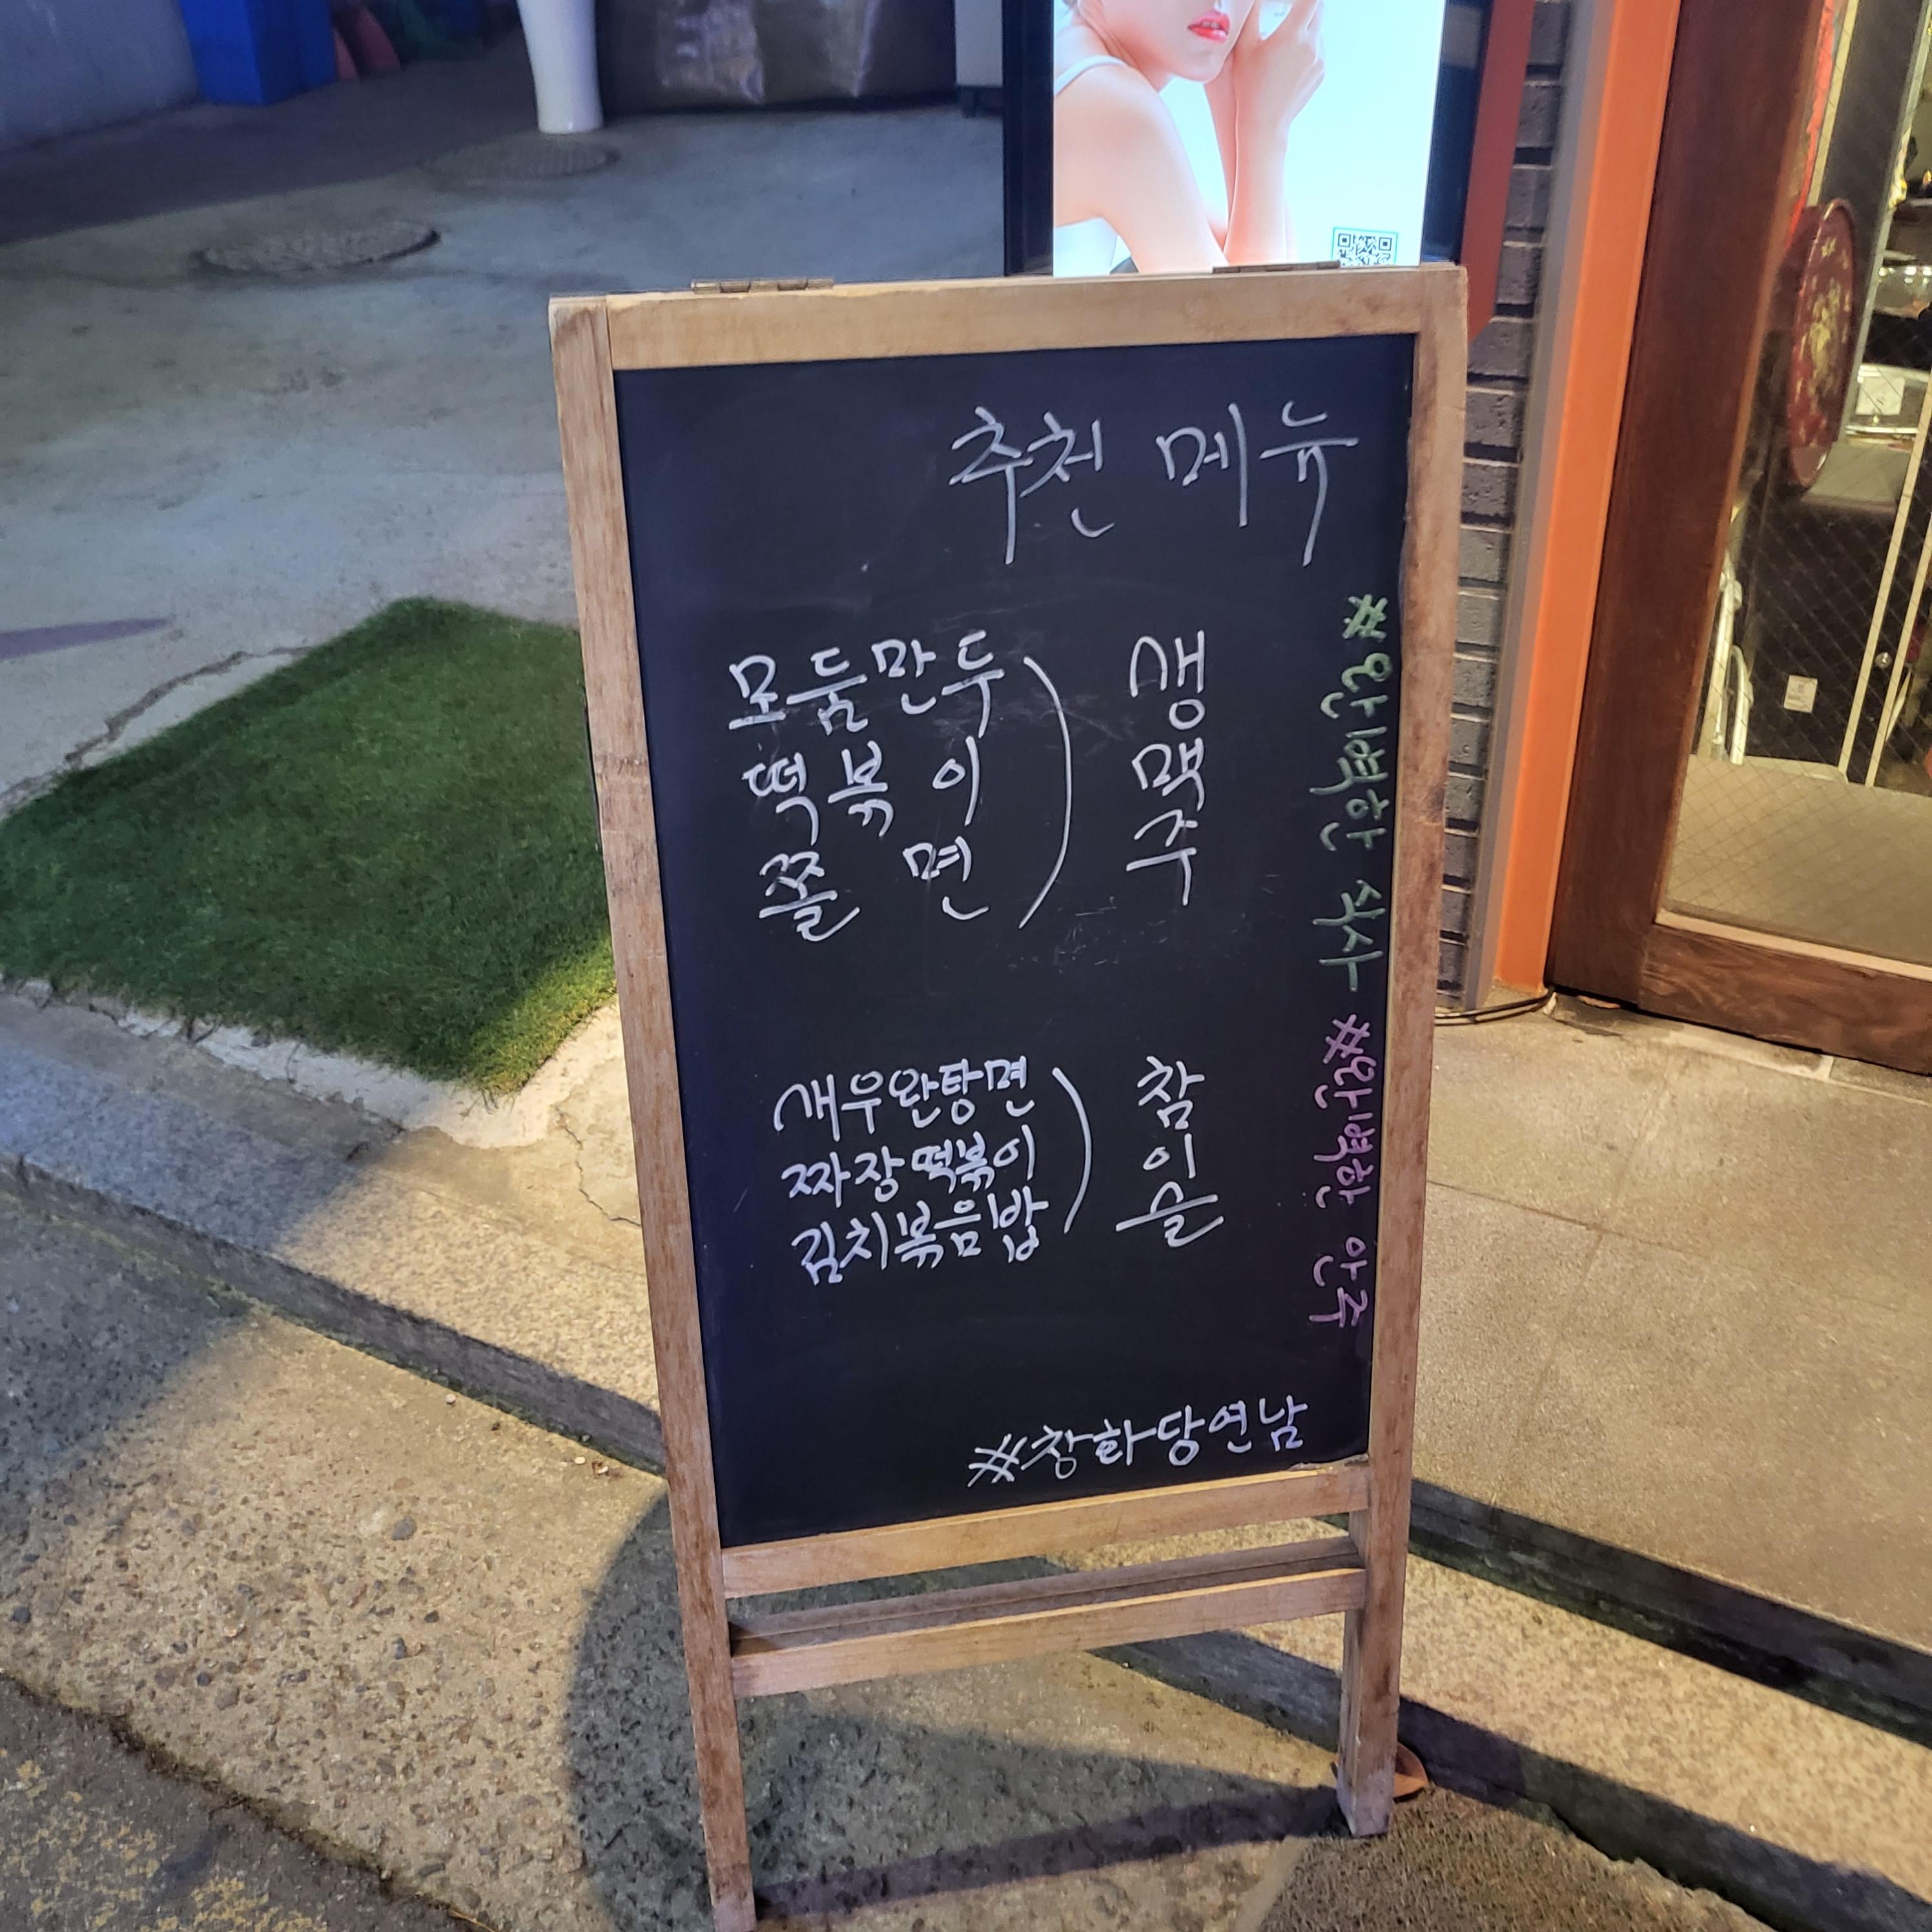 추천 메뉴
모둠만두
떡볶이
쫄면
생맥주
새우완탕면
짜장떡볶이
김치볶음밥
참이슬
#완벽한 식사 #완벽한 안주
#창화당연남